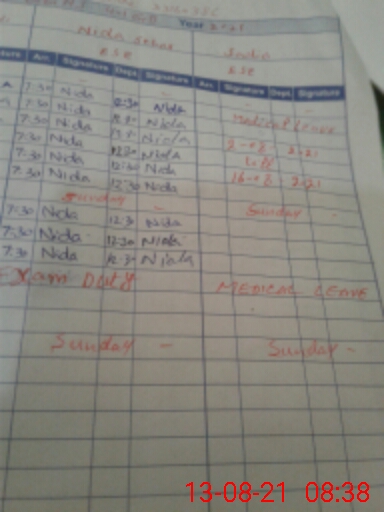 Year 2021
Nida
ESE ESE
Arr. Signature Dept. Signature Arr. Signature Dept. Signature
7:30 Nida 12:30 Nida
7:30 Nida Nida Medical Leave
7:30 Nida Nida 2-08 2021
7:30 Nida 12:30 Nida To
7:30 Nida 12:30 Nida 16-08 2021
7:30 Nida 12:30 Nida
Sunday - Sunday -
7:30 Nida 12:3 Nida
7:30 Nida 12:30 Nida
7:30 Nida 12:3 Nida
Exam Duty MEDICAL LEAVE
Sunday - Sunday -
13-08-21 08:38